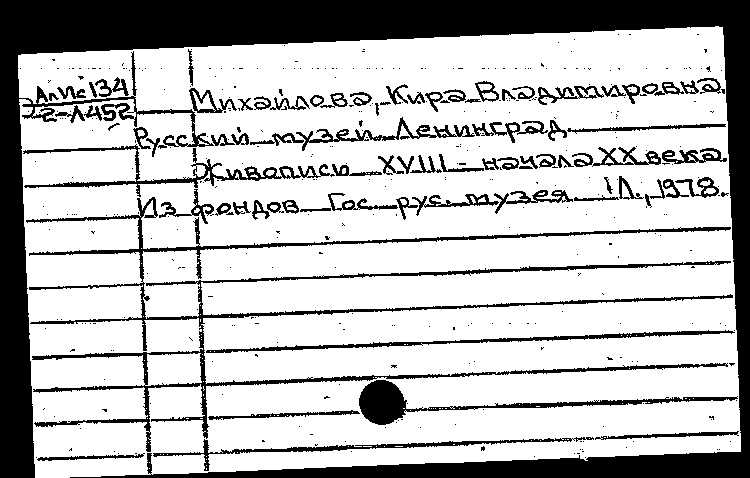 АлИс134
2-Л452
Михайлова, Кира Владимировна.
Русский музей. Ленинград.
Живопись XVIII - начала XX века.
Из фондов Гос. рус. музея. Л., 1978.